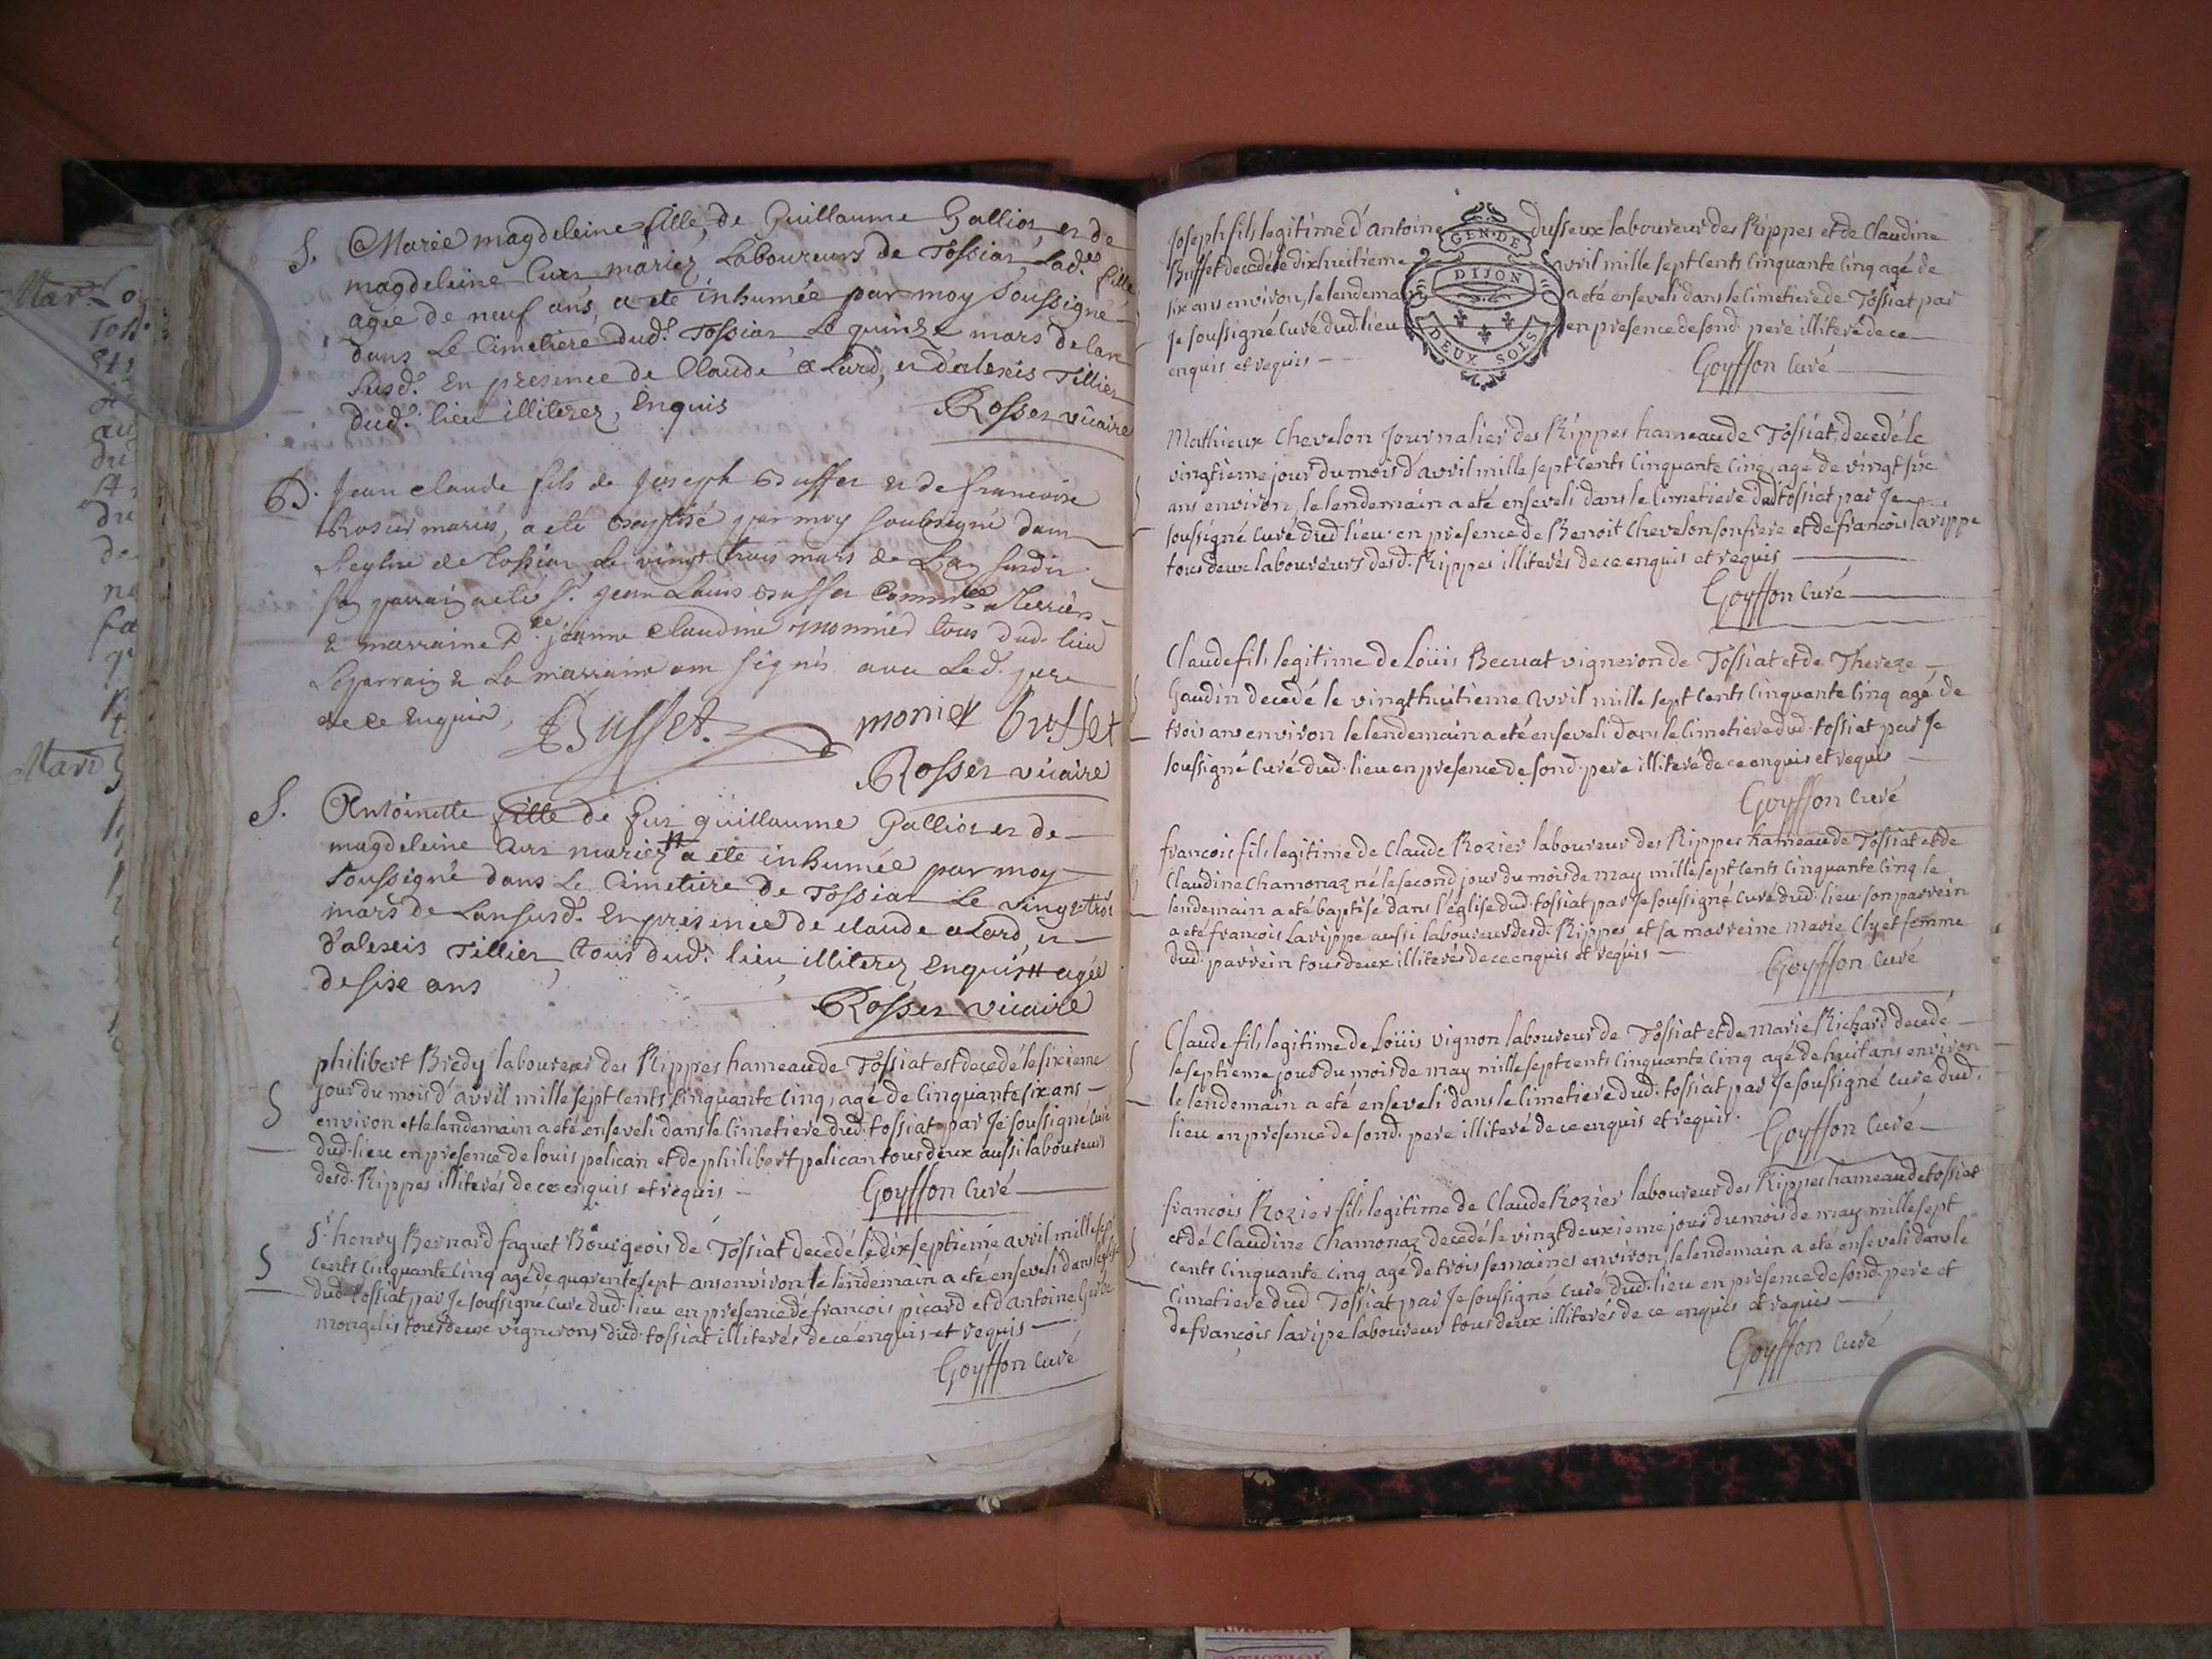 S. Marie magdeleine fille, de Guillaume Galliot et de
magdeleine Curt mariez Laboureurs de Tossiat, Lad.e fille
agée de neuf ans, a eté inhumée par moy soussigné
dans Le Cimetiere dud.t Tossiat Le quinze mars de lan
susd.t En presence de Claude alard, et d'alexis Tillier
dud.t lieu illiterez, Enquis
Rosset vicaire
B. Jean claude fils de Joseph Buffet et de francoise
Rosier mariés, a eté baptisé par moy soubsigné dans
L'eglise de Tossiat Le vingt trois mars de Lan susdit
son parrain a eté S.r jean Louis Buffet Commre a Terriers
et marraine D.lle jeanne Claudine monnier tous dud. lieu
Le parrain et La marraine ont signés avec Led. pere
de ce Enquis, Buffet. monier buffet
Rosset vicaire
S. Antoinette fille de feu guillaume Galliot et de
magdeleine Curt mariez # a eté inhumée par moy
soussigné dans Le Cimetiere de Tossiat Le vingt trois
mars de Lan susd.t En presence de claude alard, et
d'alexis Tillier tous dud.t lieu, illiterez, Enquis # agée
de sixe ans
Rosset vicaire
philibert Bredy laboureur des Rippes hameau de Tossiat est decedé le sixieme
S jour du mois d'avril mille sept Cents Cinquante Cinq, agé de Cinquante six ans
environ et le lendemain a eté enseveli dans le Cimetiere dud. tossiat par Je soussigné Curé
dud. lieu en presence de louis pelican et de philibert pelican tous deux aussi laboureurs
desd. Rippes illiterés de ce enquis et requis
Goyffon Curé
S.r henry Bernard faguet Bourgeois de Tossiat decedé le dix septieme avril mille sept
S cents Cinquante Cinq agé de quarente sept ans environ le lendemain a eté enseveli dans leglise
dud. tossiat par Je soussigné Curé dud. lieu en presence de francois picard et d'antoine
mongelis tous deux vignerons dud. tossiat illiterés de ce enquis et requis
Goyffon Curé
Joseph fils legitime d'antoine dusseux laboureur des Rippes et de Claudine
Buffet decedé le dixhuitieme avril mille sept Cents Cinquante Cinq agé de
six ans environ, le lendemain a eté enseveli dans le Cimetiere de Tossiat par
Je soussigné Curé dud. lieu en presence de sond. pere illiteré de ce
enquis et requis
GEN. DE
DIJON
DEUX SOLS
Goyffon Curé
Mathieux Chevelon Journalier des Rippes hameau de Tossiat, decedé le
vingtieme jour du mois d'avril mille sept Cents Cinquante Cinq, agé de vingt six
ans environ, le lendemain a eté enseveli dans le Cimetiere dud tossiat par Je
soussigné Curé dud. lieu en presence de Benoit Chevelon son frere et de francois larippe
tous deux laboureurs desd. Rippes illiterés de ce enquis et requis
Goyffon Curé
Claude fils legitime de Loüis Becuat vigneron de Tossiat et de Thereze
Gaudin decedé le vingt huitieme Avril mille sept Cents Cinquante Cinq agé de
trois ans environ le lendemain a eté enseveli dans le Cimetiere dud. tossiat par Je
soussigné Curé dud. lieu en presence de sond. pere illiteré de ce enquis et requis
Goyffon Curé
francois fils legitime de Claude Rozier laboureur des Rippes hameau de Tossiat et de
Claudine Chamonaz né le second jour du mois de may mille sept Cents Cinquante Cinq le
lendemain a eté baptisé dans l'église dud. tossiat par Je soussigné Curé dud. lieu. son parrein
a eté francois Larippe aussi laboureur desd. Rippes et sa marreine Marie Clyet femme
dud. parrein tous deux illiterés de ce enquis et requis
Goyffon Curé
Claude fils legitime de Loüis vignon laboureur de Tossiat et de marie Richard decedé
le septieme jour du mois de may mille sept cents Cinquante Cinq agé de huit ans environ
le lendemain a eté enseveli dans le Cimetiere dud. tossiat par Je soussigné Curé dud.
lieu en presence de sond. pere illiteré de ce enquis et requis.
Goyffon Curé
francois Rozier fils legitime de Claude Rozier laboureur des Rippes hameau de tossiat
et de Claudine Chamonaz decedé le vingt deuxieme jour du mois de may mille sept
cents Cinquante Cinq agé de trois semaines environ, le lendemain a eté enseveli dans le
cimetiere dud Tossiat par Je soussigné Curé dud. lieu en presence de sond. pere et
de françois laripe laboureur tous deux illiterés de ce enquis et requis
Goyffon Curé